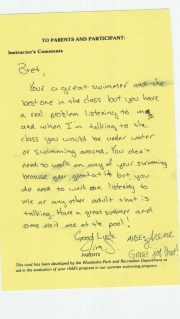 TO PARENTS AND PARTICIPANT:
Instructor's Comments
Bret,
Your a great swimmer and the
best one in the class but you have
a real problem listening to me
and when I'm talking to the
class you would be under water
or swimming around. You don't
need to work on any of your swimming
because your great at it but you
do need to work on listening to
me or any other adult that is
talking. Have a great summer and
come visit me at the pool!
Good Luck
Jim
Great job Bret!
PARENTS
This card has been developed by the Waukesha Park and Recreation Department to
aid in the evaluation of your child's progress in our summer swimming program.